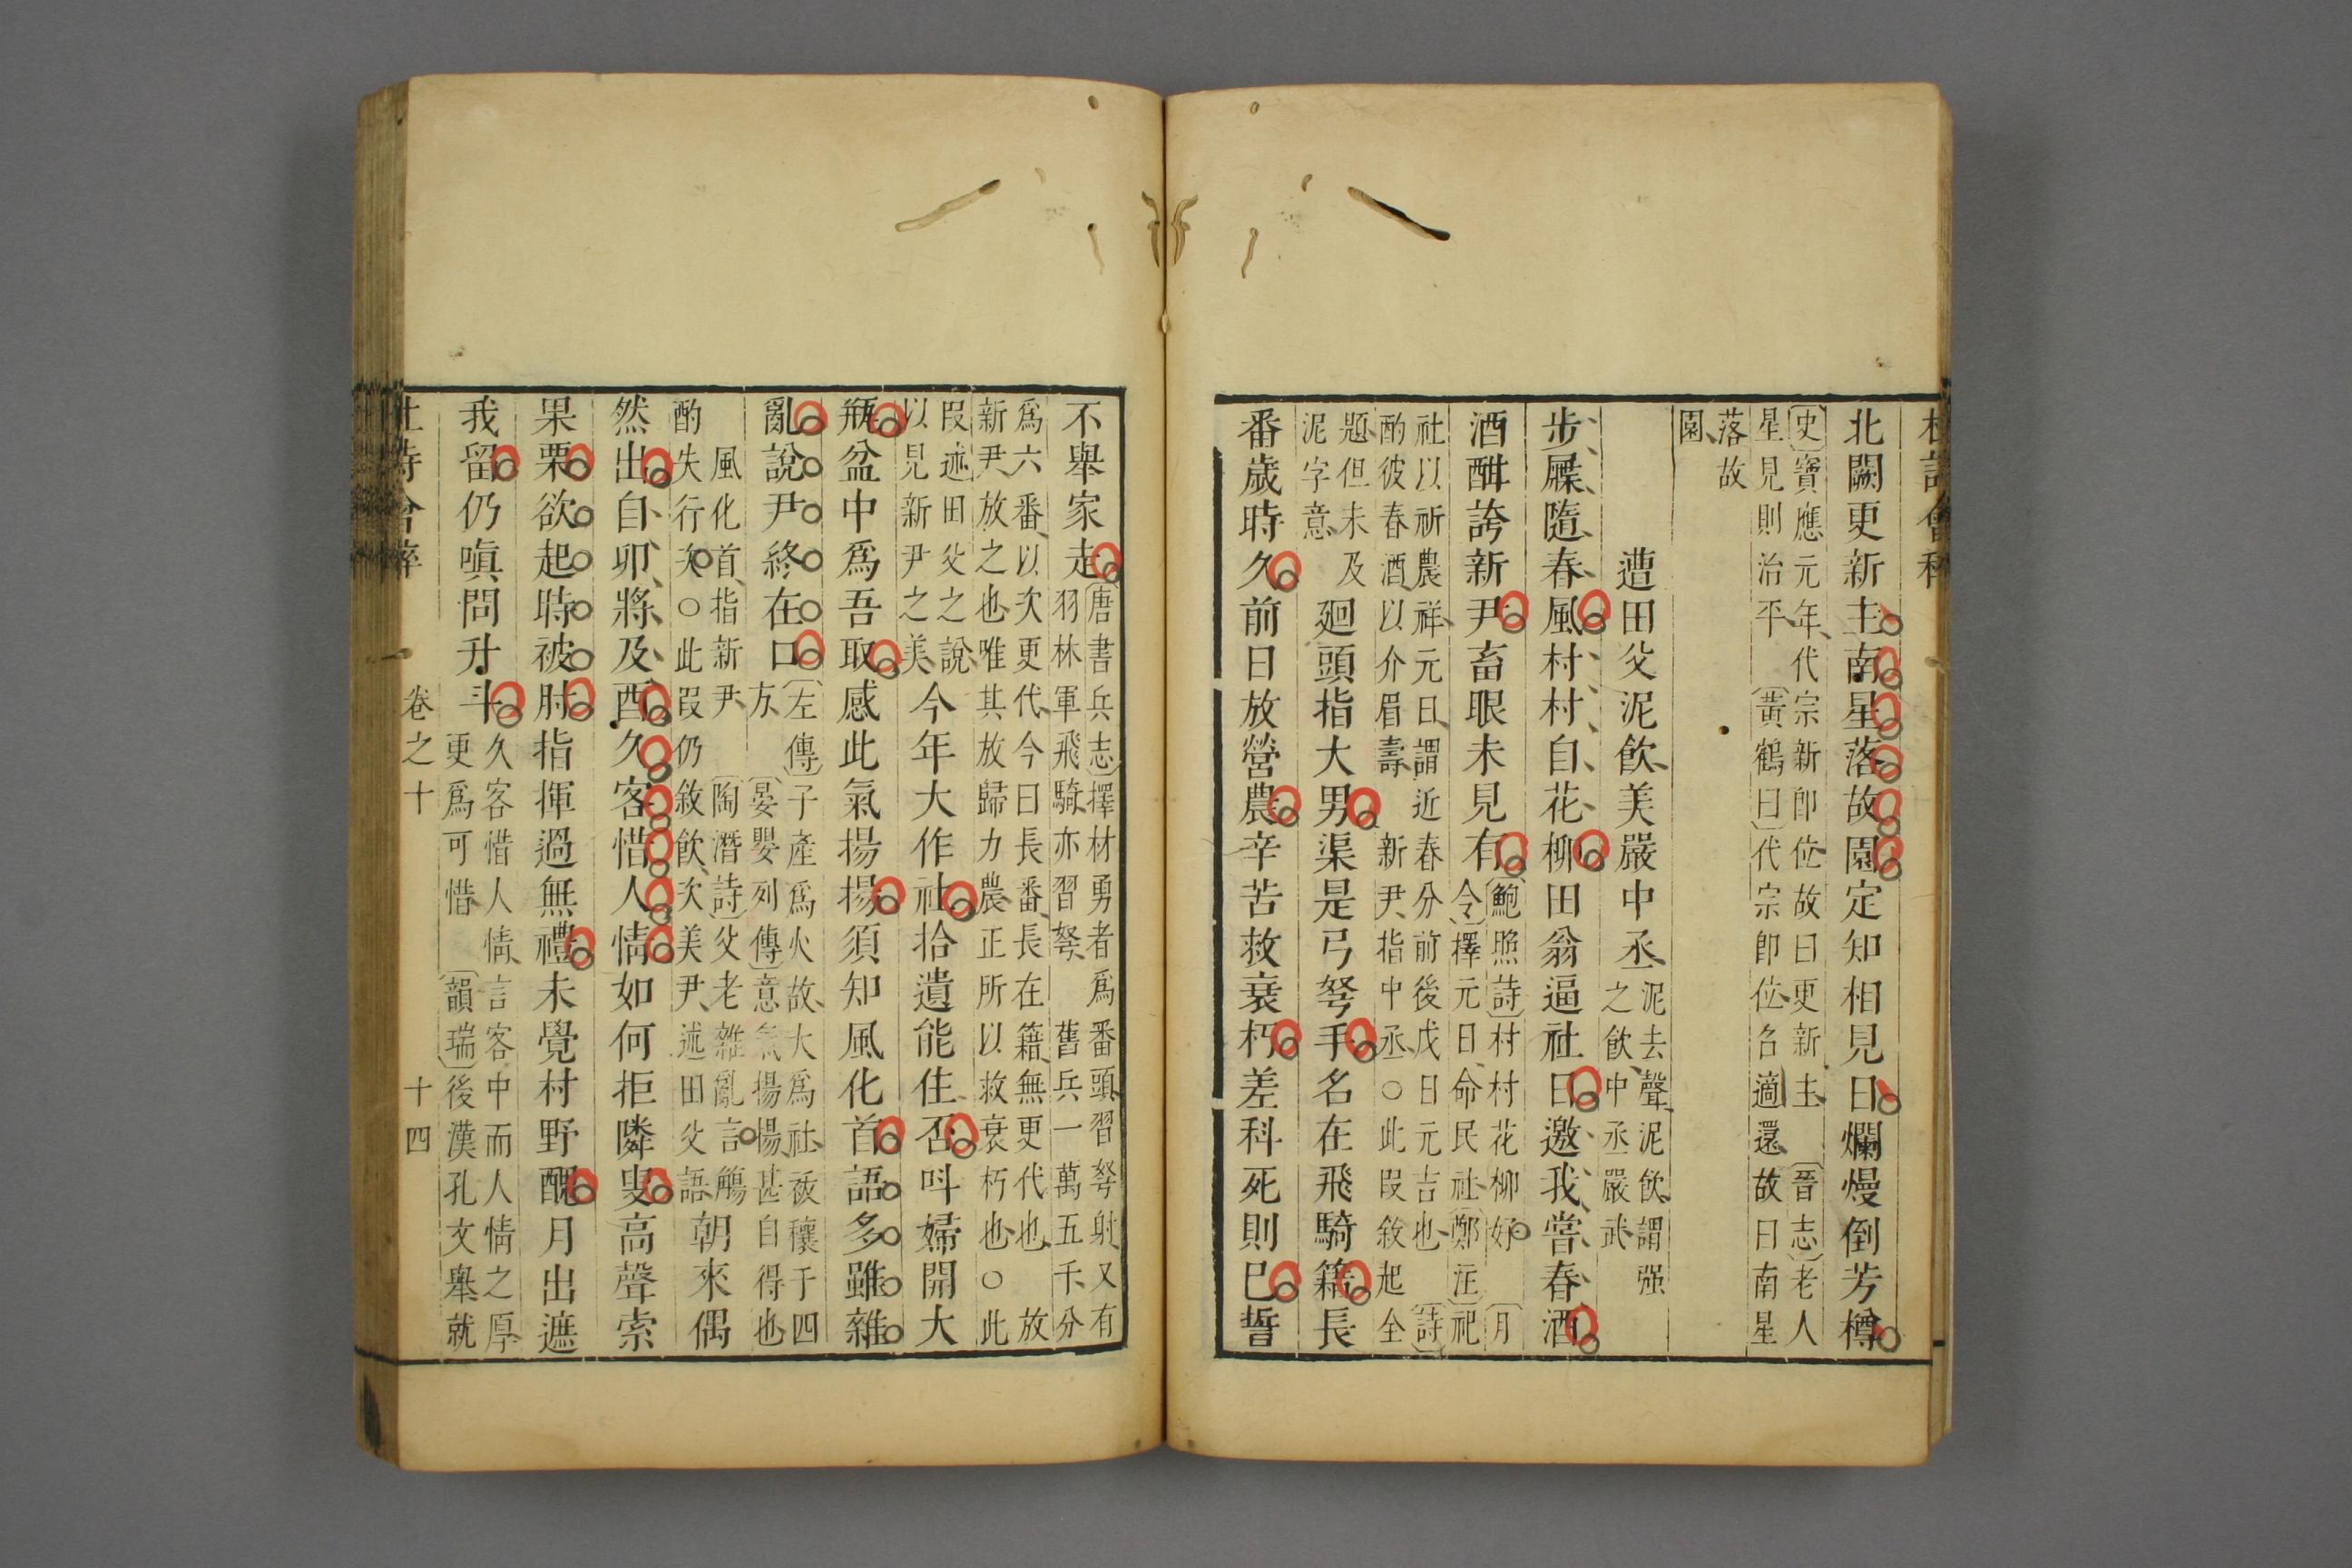 北闕更新主南星落故園定知相見日爛熳倒芳樽
史寶應元年代宗新卽位故曰更新主　晉志老人
星見則治平　黃鶴曰代宗卽位名適還故曰南星
落故
園
遭田父泥飲美嚴中丞
泥去聲泥飲謂强
之飲中丞嚴武
步屧隨春風村村自花柳田翁逼社日邀我嘗春酒
酒酣誇新尹畜眼未見有
鮑照詩村村花柳好　月
令擇元日命民社鄭注祀
社以祈農祥元日謂近春分前後戊日元吉也　詩
酌彼春酒以介眉壽　新尹指中丞○此段敘起全
題但未及
泥字意
廻頭指大男渠是弓弩手名在飛騎籍長
番歲時久前日放營農辛苦救衰朽差科死則已誓
不舉家走
唐書兵志擇材勇者爲番頭習弩射又有
羽林軍飛騎亦習弩　舊兵一萬五千分
爲六番以次更代今曰長番長在籍無更代也　放
新尹放之也唯其放歸力農正所以救衰朽也○此
段述田父之說
以見新尹之美
今年大作社拾遺能住否呌婦開大
瓶盆中爲吾取感此氣揚揚須知風化首語多雖雜
亂說尹終在口
左傳子產爲火故大爲社祓禳于四
方　晏嬰列傳意氣揚揚甚自得也
風化首指新尹　陶潛詩父老雜亂言觴
酌失行次○此段仍敘飲次美尹述田父語
朝來偶
然出自卯將及酉久客惜人情如何拒隣叟高聲索
果栗欲起時被肘指揮過無禮未覺村野醜月出遮
我留仍嗔問升斗
久客惜人情言客中而人情之厚
更爲可惜　韻瑞後漢孔文舉就
卷之十　十四